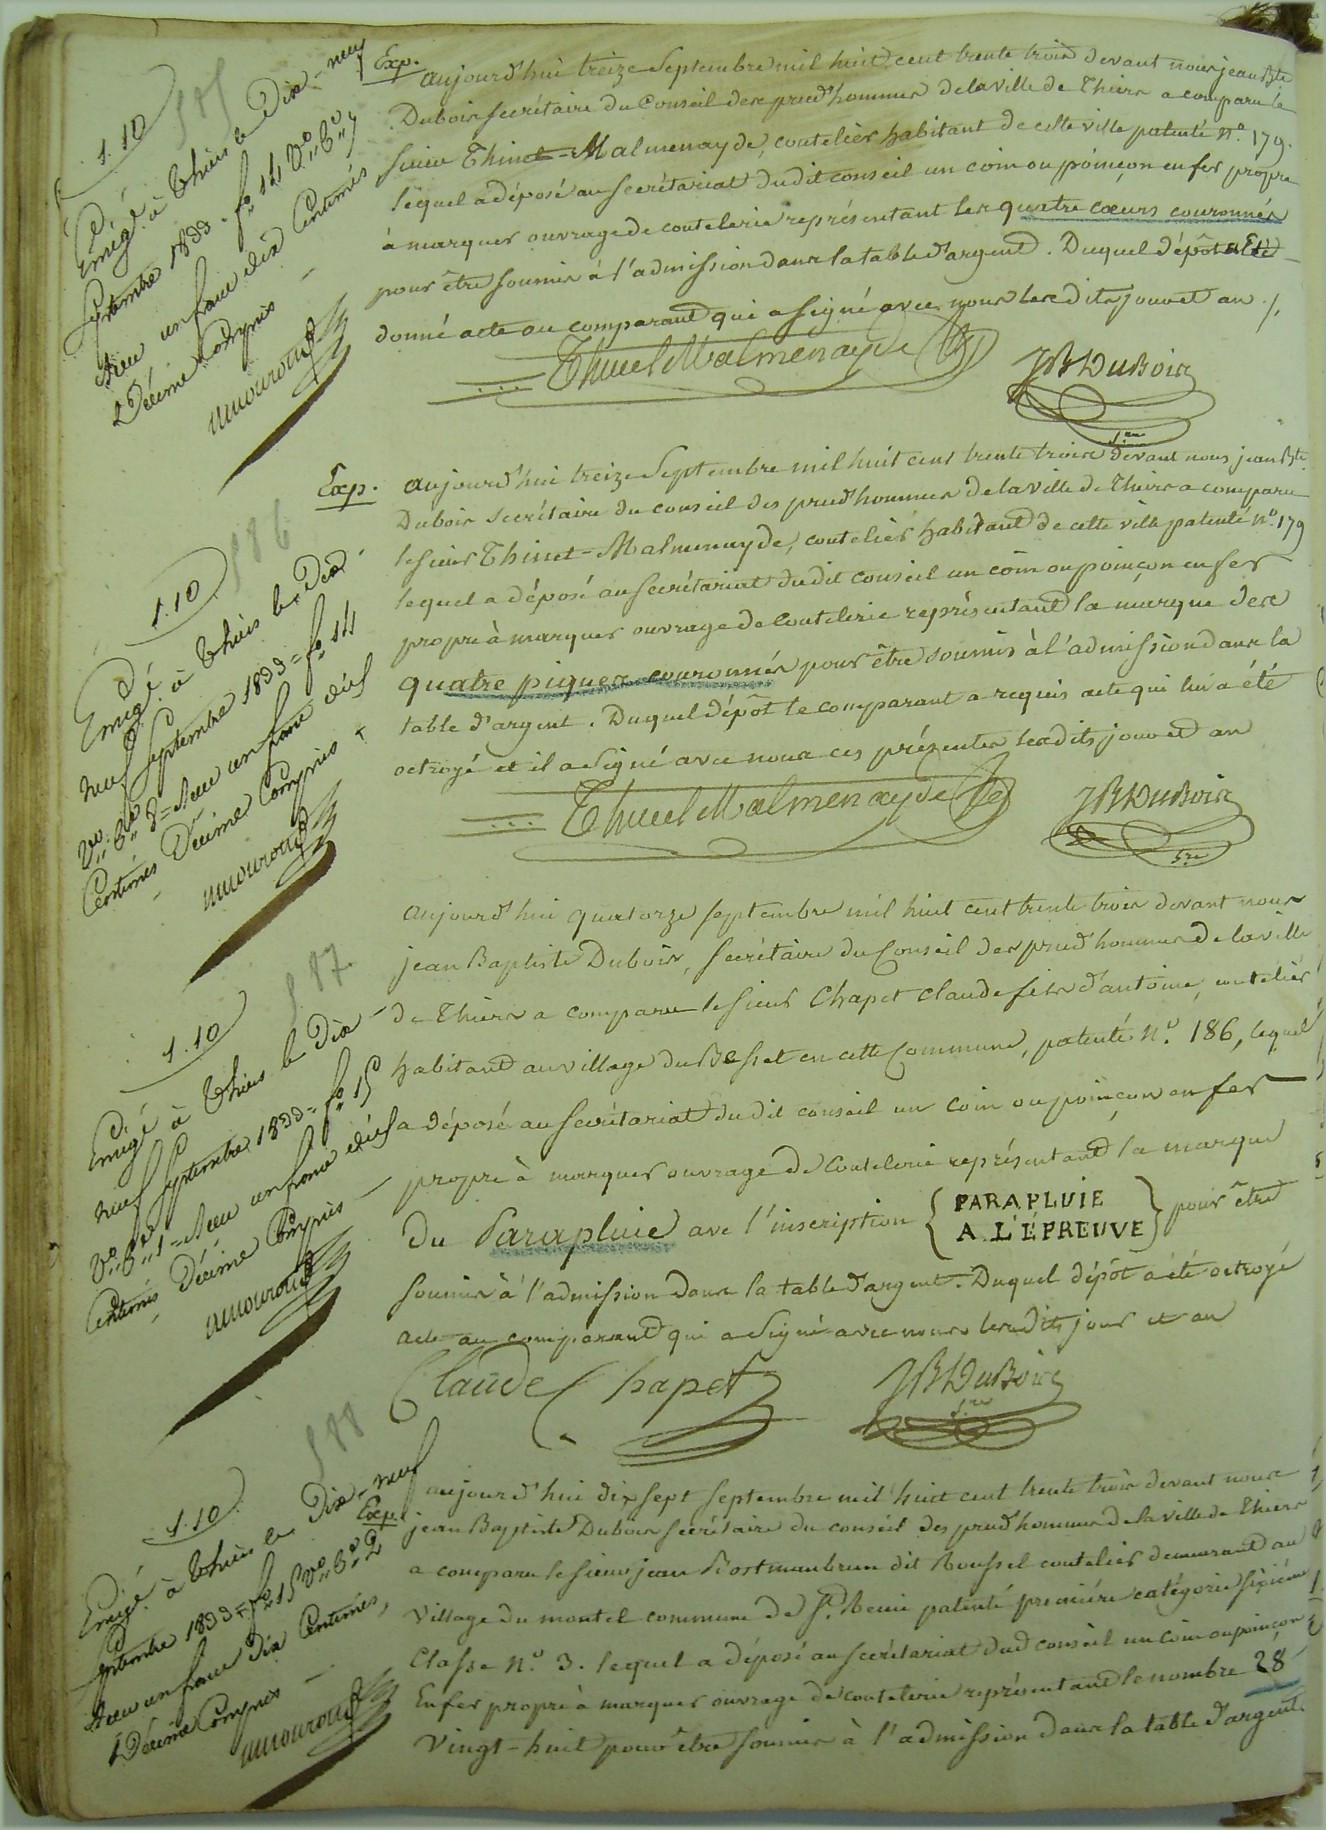 585
1.10
Enrgé à Thiers le Dix-neuf
Septembre 1833 = fo 141 Vo Co 7
Reçu un franc dix Centimes
Décime Compris
Exp.
aujourd'hui treize Septembre mil huit cent trente trois devant nous jean Bte
Dubois secrétaire du Conseil des prud'hommes de la ville de Thiers a comparu le
sieur Thinet-Malmenayde, coutelier habitant de cette ville patenté No. 179.
lequel a déposé au secrétariat dudit conseil un coin ou poinçon en fer propre
à marquer ouvrage de coutelerie représentant les quatre cœurs couronnés
pour être soumis à l'admission dans la table d'argent. Duquel dépôt a été
donné acte au comparant qui a signé avec nous lesdits jour et an
Thinet Malmenayde
JB Dubois
Sre
586
1.10
Enrgé à Thiers le Dix-
neuf Septembre 1833 = fo 14
Vo Co 8 = Reçu un franc dix
Centimes Décime Compris
Exp.
aujourd'hui treize Septembre mil huit cent trente trois devant nous jean Bte
Dubois secrétaire du conseil des prud'hommes de la ville de Thiers a comparu
le sieur Thinet-Malmenayde, coutelier habitant de cette ville patenté No. 179
lequel a déposé au secrétariat dudit conseil un coin ou poinçon en fer
propre à marquer ouvrage de coutelerie représentant la marque des
quatre piques couronnés pour être soumis à l'admission dans la
table d'argent. Duquel dépôt le comparant a requis acte qui lui a été
octroyé et il a signé avec nous ces présentes lesdits jour et an
Thinet Malmenayde
JB Dubois
Sre
587.
1.10
Enrgé à Thiers le Dix-
neuf Septembre 1833 = fo 15
Vo Co 1 = Reçu un franc dix
Centimes Décime Compris
aujourd'hui quatorze septembre mil huit cent trente trois devant nous
jean Baptiste Dubois, secrétaire du Conseil des prud'hommes de la ville
de Thiers a comparu le sieur Chapet Claude fils d'antoine, coutelier
habitant au village du Besset en cette Commune, patenté No. 186, lequel
a déposé au secrétariat dudit conseil un coin ou poinçon en fer
propre à marquer ouvrage de Coutelerie représentant la marque
du Parapluie avec l'inscription { PARAPLUIE A L'ÉPREUVE } pour être
soumis à l'admission dans la table d'argent. Duquel dépôt a été octroyé
acte au comparant qui a signé avec nous lesdits jour et an
Claude Chapet
JB Dubois
Sre
588
1.10
Enrgé à Thiers le Dix-neuf
Septembre 1833 = fo 15 Vo Co 2
Reçu un franc Dix Centimes,
Décime Compris
Exp.
aujourd'hui dix sept septembre mil huit cent trente trois devant nous
jean Baptiste Dubois secrétaire du conseil des prud'hommes de la ville de Thiers
a comparu le sieur jean Bostmanbrun dit Roussel coutelier demeurant au
village du montel commune de St. Remi patenté première catégorie sixième
Classe No. 3. lequel a déposé au secrétariat dud conseil un Coin ou poinçon
En fer propre à marquer ouvrage de coutelerie représentant le nombre 28
Vingt-huit pour être soumis à l'admission dans la table d'argent.